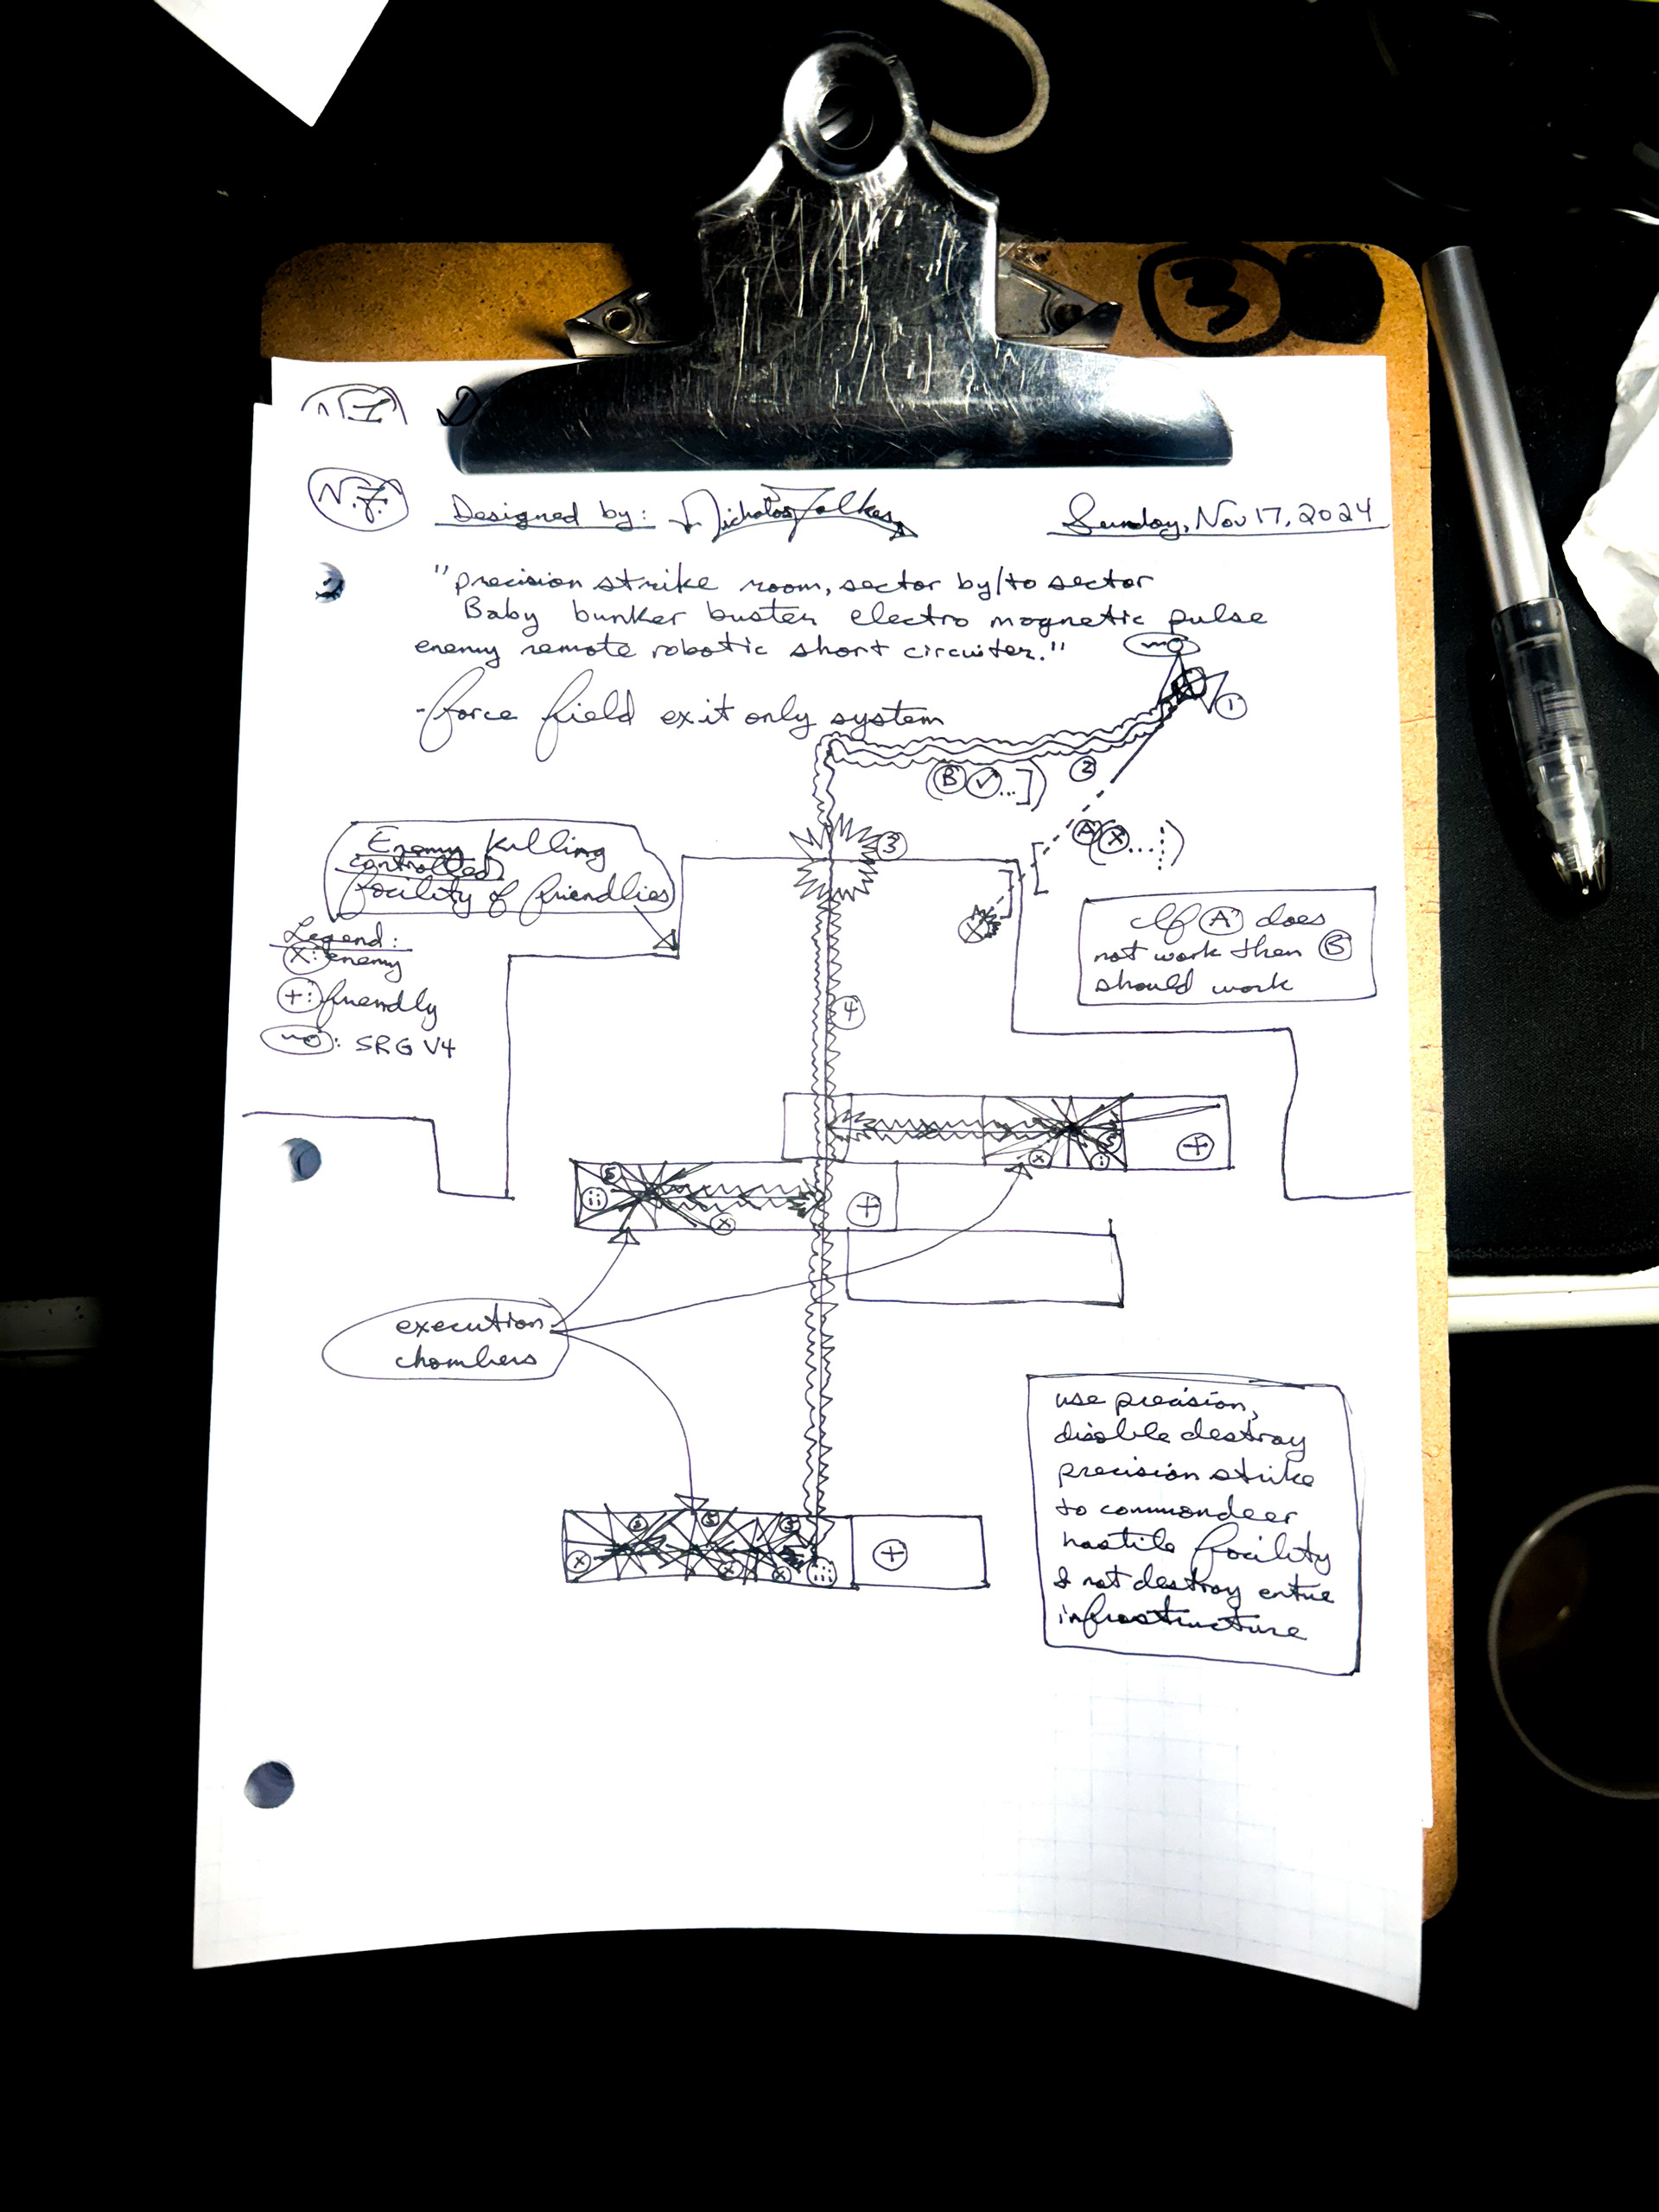 3
N.F.
Designed by: Nicholas Folkes
Sunday, Nov 17, 2024
"precision strike room, sector by/to sector
Baby bunker buster electro magnetic pulse
enemy remote robotic short circuiter."
-force field exit only system
1
2
(B ✓...])
3
A (X...)
Enemy killing
controlled
facility of friendlies
Legend:
X: enemy
+: friendly
: SRG V4
If A does
not work then B
should work
X
4
5
X
i
+
5
ii
X
+
execution
chambers
use precision,
disable destroy
precision strike
to commondeer
hostile facility
& not destroy entire
infrastructure
5
5
5
X
X
X
iii
+